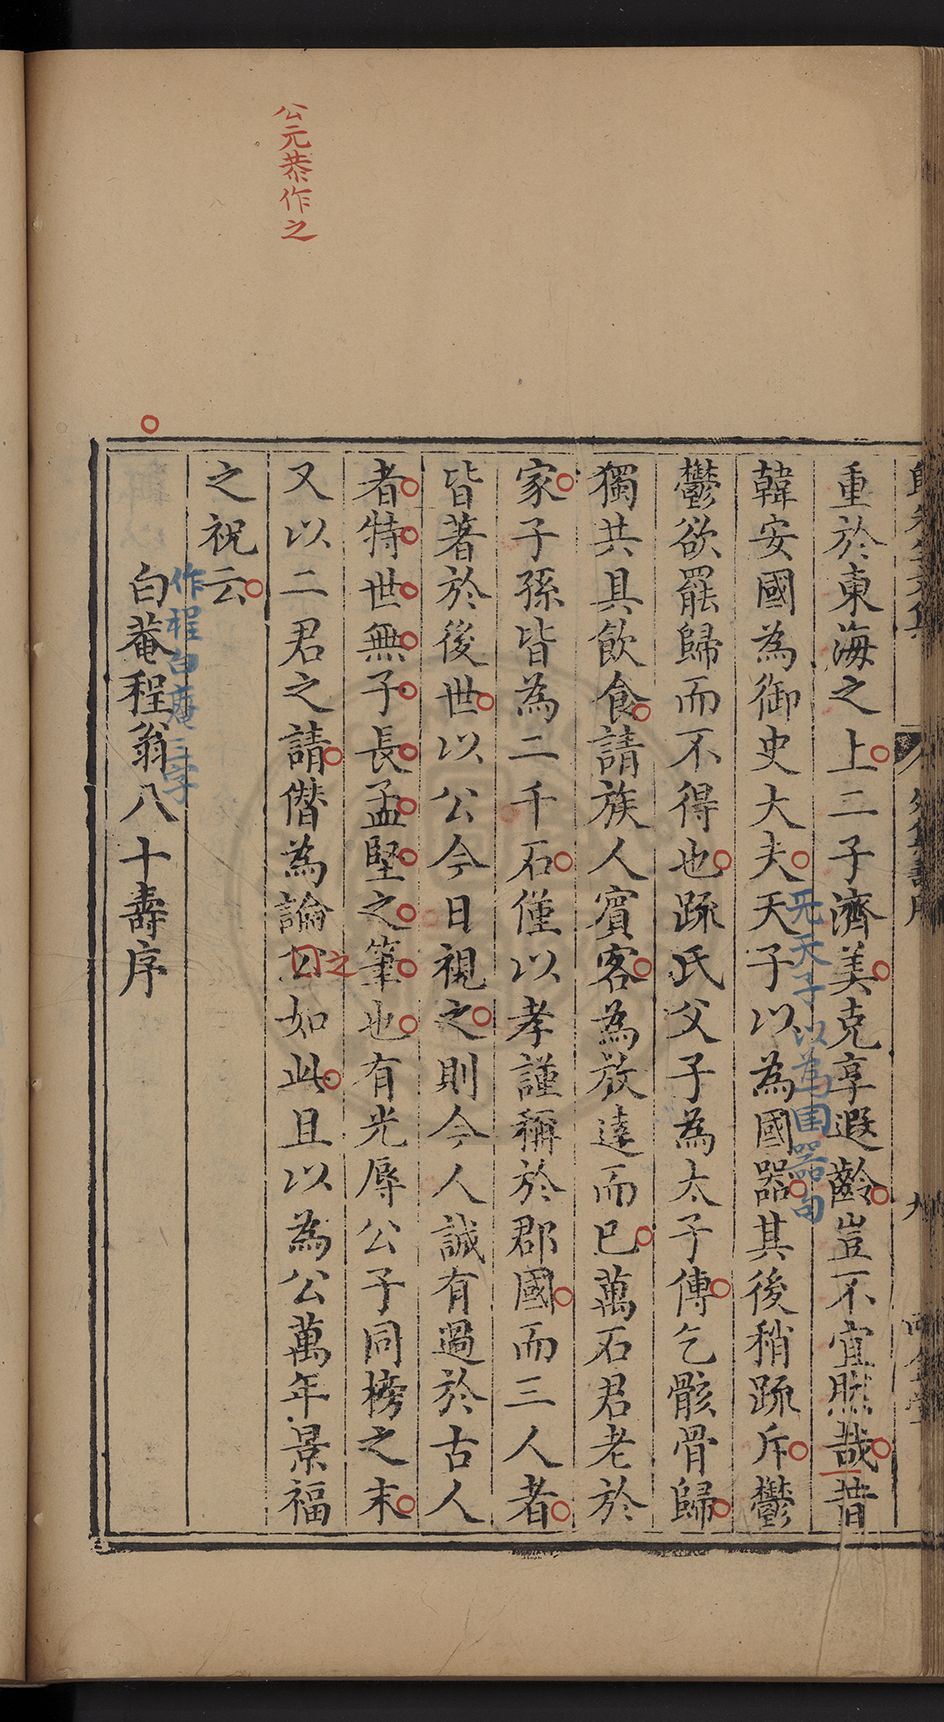 公元恭作之
重於東海之上二子濟美克享遐齡豈不宜然哉昔
韓安國為御史大夫天子以為國器其後稍疏斥鬱
鬱欲罷歸而不得也疏氏父子為太子傅乞骸骨歸
獨共具飲食請族人賓客為放達而已萬石君老於
家子孫皆為二千石僅以孝謹稱於郡國而三人者
皆著於後世以公今日視之則今人誠有過於古人
者特世無子長孟堅之筆也有光辱公子同榜之末
又以二君之請僭為論如此且以為公萬年景福
之祝云
白菴程翁八十壽序
之
作程白庵三字